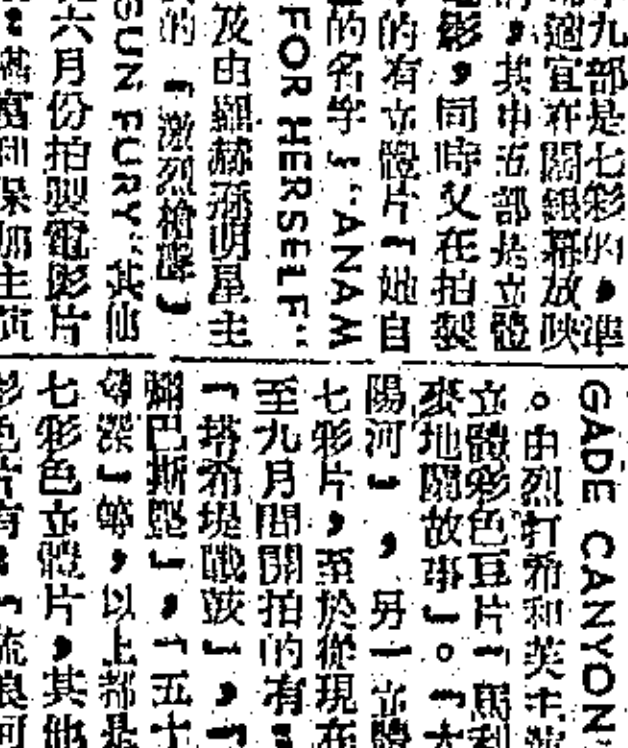 九部是七彩的，準
適宜在闊銀幕放映
，其中五部是立體
影，同時又在拍製
的有立體片「她自
的名字」"ANAM
FOR HERSELF"
及由羅赫遜明星主
的「激烈槍聲」
SUN FURY"其他
六月份拍製電影片
和保加主演
GADE CANYON"
。由烈打希和芙
立體彩色巨片「馬利
麥地關故事」。「太
陽河」，另一立體
七彩片，至於從現在
至九月間開拍的有
「塔希堤戰鼓」，「
斯巴斯堡」，「五
尋深」等，以上都是
七彩色立體片，其他
彩色片有：「流浪河